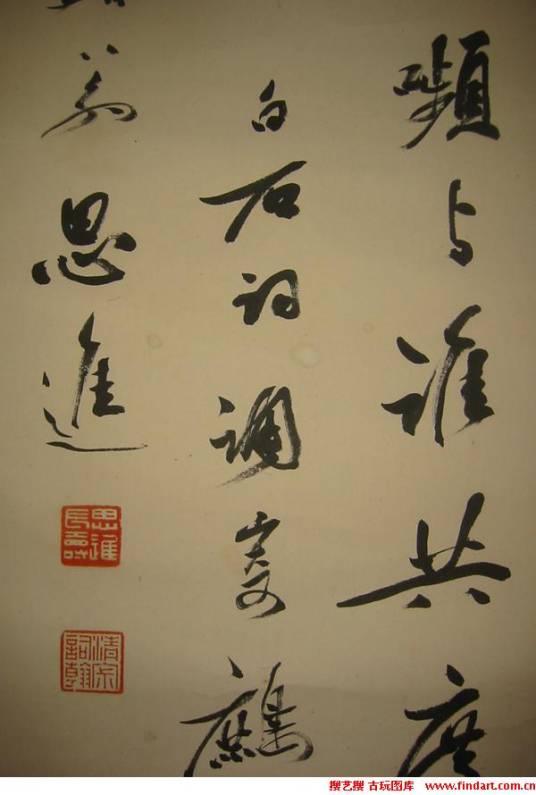 嚬与誰共度
白石詞調寄鷓
思進
思進長壽
清寂詞翰
撰艺撰 古玩图库 www.findart.com.cn